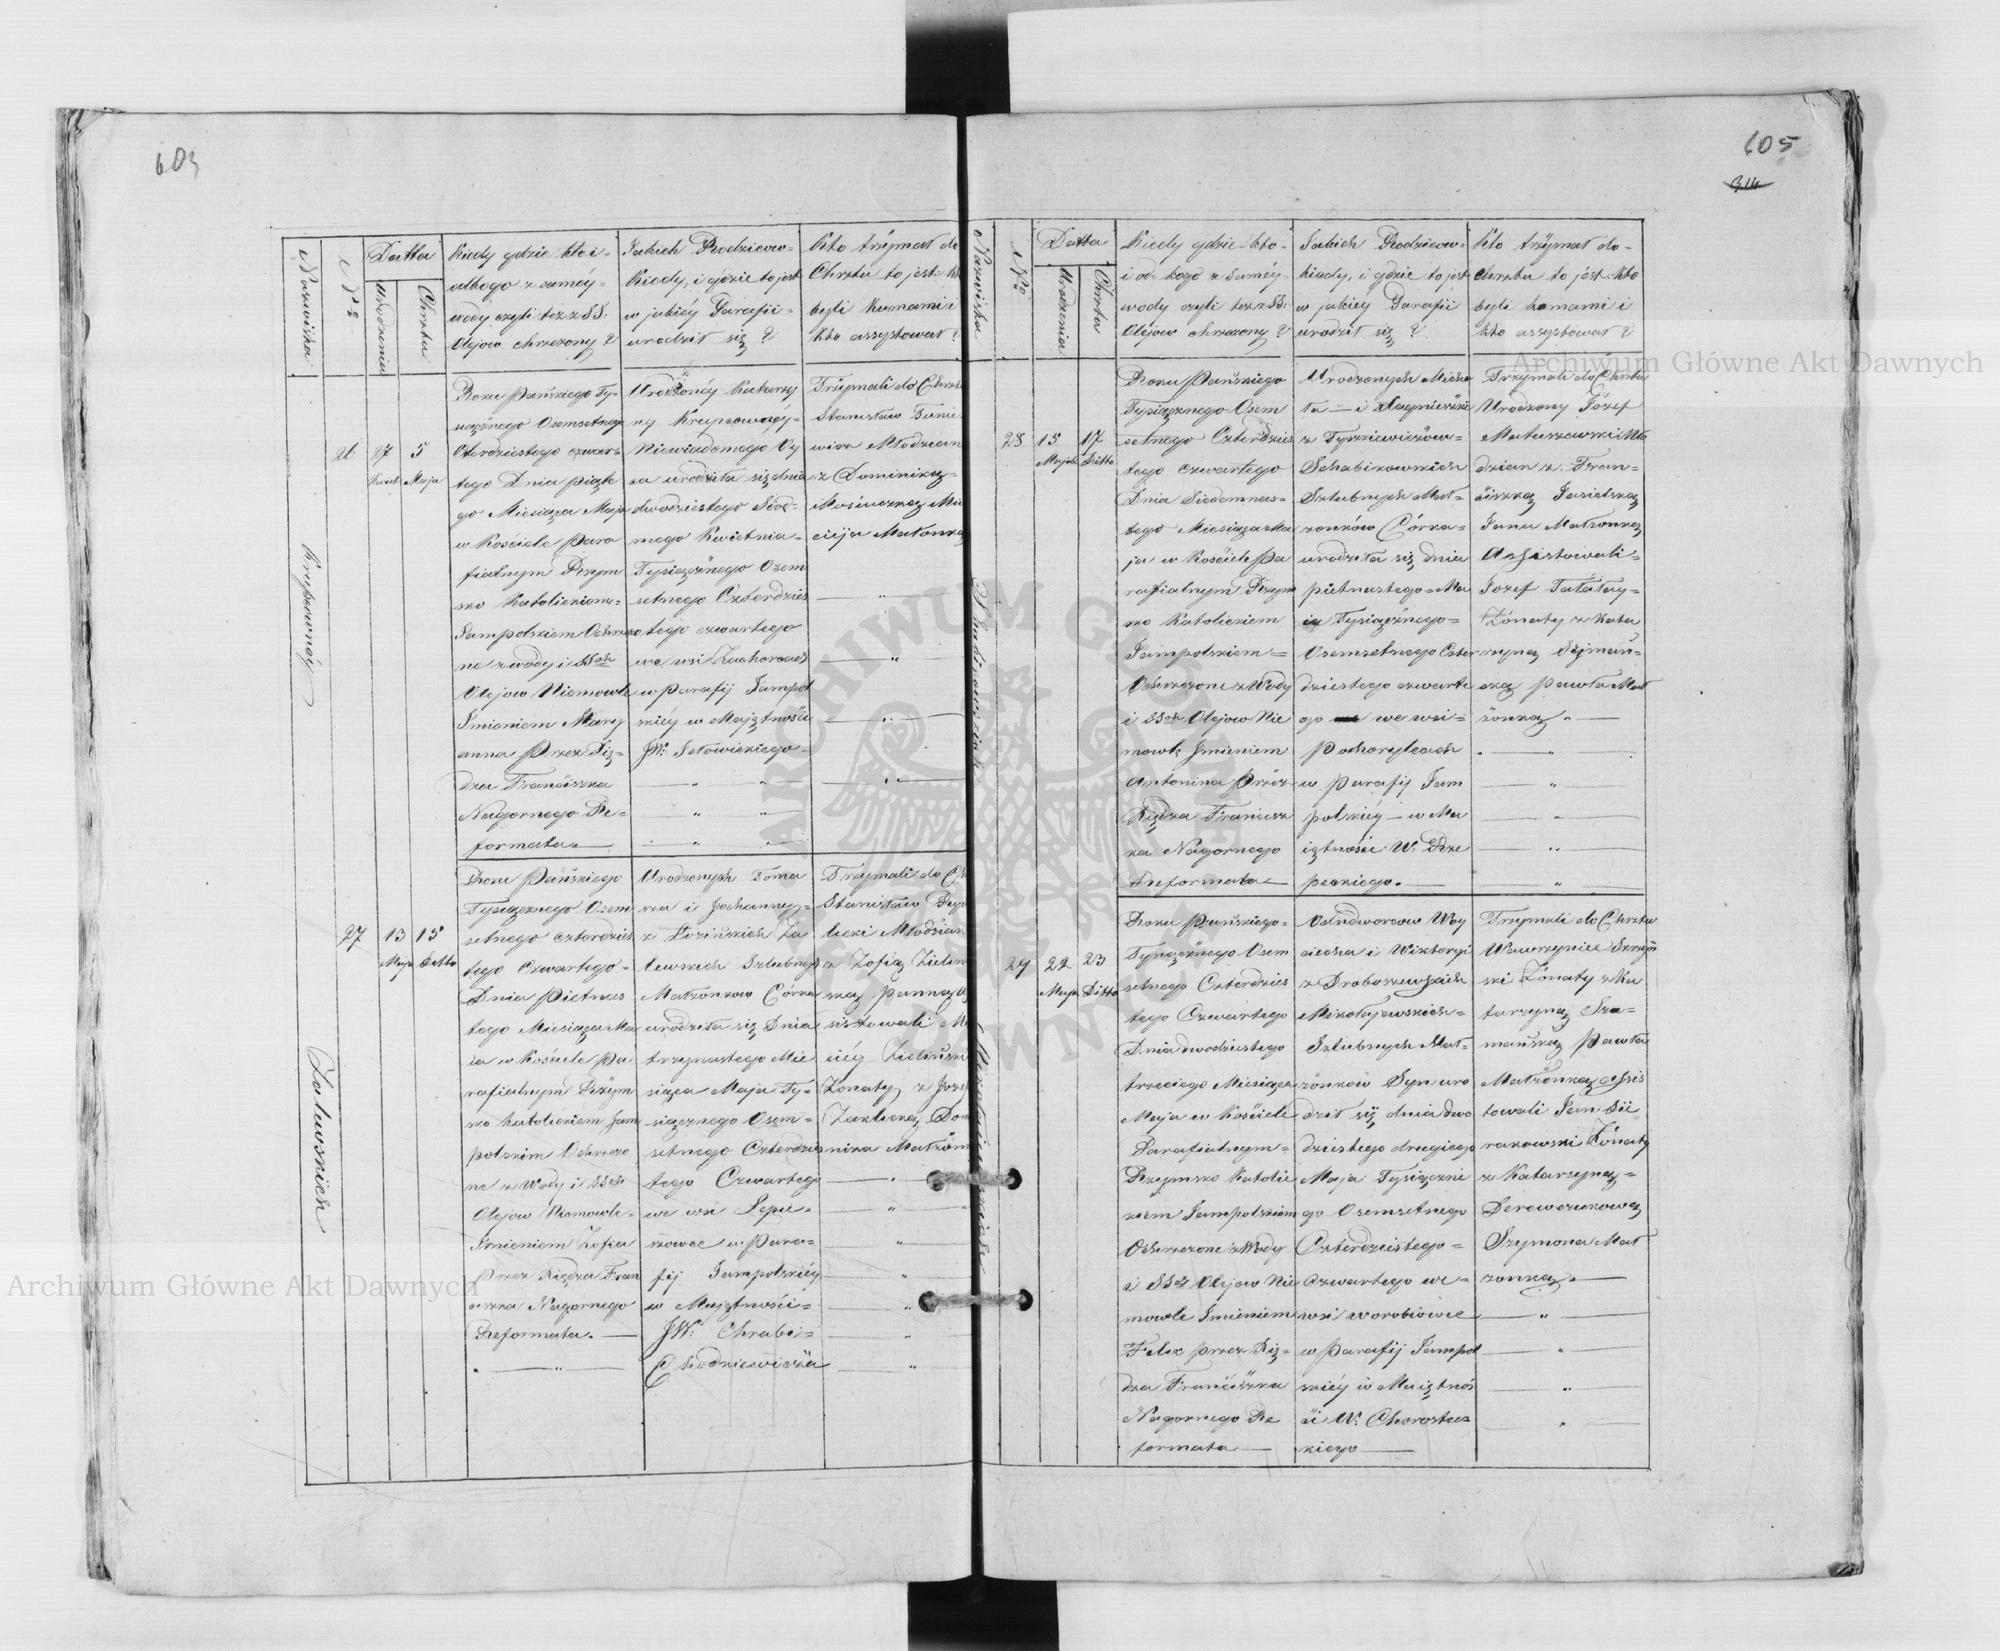 603
Nazwiska
Nro
Datta
Urodzenia
Chrztu
Kiedy gdzie kto i
albogo z saméy
wody czyli tez z SS:
Olejow chrzczony?
Jakich Rodzicow
Kiedy, i gdzie to jest
w jakiéy Parafii
urodził się?
Kto trzÿmał do
Chrztu to jest kto
byli Kumami i
kto assystował?
26
27
Kwiet
5
Maja
Roku Pańskiego Ty-
siącznego Osemsetnego
Czterdziestego czwar-
tego Dnia piąte
go Miesiąca Maja
w Kościele Para
fialnym Rzym
sko Katolickiem
Jampolskiem Ochrzczo
no z wody i SSch
Olejow Niemowle
Imieniem Mary
anna Przez Xię=
dza Franciszka
Nagornego Re=
formata
Urodzonéy Katarzy
ny
Niewiadomego Oy
ca urodziła się dnia
dwódziestego Siód=
mego Kwietnia
Tysiącznego Osem
setnego Czterdzies
tego czwartego
we wsi
w Parafij Jampol
skiéy w Majętności
JW:
Trzÿmali do Chrztu
Stanisław
Młodzian
z Dominiką
cieja Małonką
27
13
Maja
15
Ditto
Zalewskich
Roku Pańskiego
Tysiącznego Osem
setnego czterdzies
tego Czwartego
Dnia Pietnas
tego Miesiąca Ma
ia w Kościele Pa
rafialnym Rzÿm
sko Katolickiem Jam
polskim Ochrzczo
ne z Wody i SSch
Olejow Niemowle
Imieniem Zofia
przez Xiędza Fran
ciszka Nagornego
Reformata.
Urodzonych Toma
sza i Johanny
z Łozińskich Za
lewskich Szlubnych
Małzonkow Córka
urodziła się Dnia
trzynastego Mie
siąca Maja Ty=
siącznego Osem=
setnego Czterdzies
tego Czwartego
we wsi Lepie=
szowce w Para=
fij Jampolskiéy
w Majętności=
JW: Chrabi=
Chodkiewicza
Trzÿmali do Ch
Stanisław
Młodzian
z Zofią Zielin
ską Panną As
sistowali Ma
ciéy Zieliński
Zonaty z Joze
Zakliką Dom
nika Małżon
605
314
Nazwiska
Nro
Datta
Urodzenia
Chrztu
Kiedy gdzie kto
i od kogo z saméy
wody czyli tez z SS:
Olejow chrzczony?
Jakich Rodzicow
kiedy, i gdzie to jest
w jakiéy Parafii
urodził się?
Kto trzÿmał do
chrztu to jest kto
byli kumami i
kto assystował?
28
15
Maja
17
Ditto
Roku Pańskiego
Tysiącznego Osem
setnego Czterdzies
tego czwartego
Dnia Siedemnas=
tego Miesiąca Ma
ja w Kościele Pa
rafialnym Rzym
sko Katolickiem
Jampolskiem=
Ochrzczone z Wody
i SSch Olejow Nie
mowle Jmieniem
Antonina Przéz
Xiędza Francisz
ka Nagornego
Reformata
Urodzonych Micha
ła i Agnieszki
z Tyszkiewiczów=
Szlubnych Mał=
zonków Córka=
urodziła się dnia
pietnastego Ma
ia Tysiącznego=
Osemsetnego Czter
dziestego czwarte
go we wsi
w Parafij Jam
polskiéy w Ma
iętności W: Rze
peckiego.
Trzymali do Chrztu
Urodzony Józef
Maturzewski Mło
dzian z Fran=
ciszką
Jana Małzonką
Assistowali=
Jozef Tatatay=
Zónaty z Kata
rzyną
Pawła Mał
żonką
29
22
Maja
23
Ditto
Roku Pańskiego
Tysiącznego Osem
setnego Czterdzies
tego Czwartego
Dnia dwodziestego
trzeciego Miesiąca
Maja w Kościele
Parafialnym=
Rzymsko Katolic
kiem Jampolskiem
Ochrzczone z Wody
i SSch Olejow Nie
mowle Imieniem
Felix przez Xię=
dza Franciszka
Nagornego Re
formata
Odnodworcow Woy
ciecha i Wiktoryi
z Droboszewskich
Mikołajewskich=
Szlubnych Mał=
żónków Syn uro
dził się dnia dwo
dziestego drugiego
Maja Tysiączne
go Osemsetnego
Czterdziestego=
Czwartego we=
wsi worobiówce
w Parafij Jampol
skiéy w Maiętnoś
ci W: Chorostec
kiego
Trzymali do Chrztu
Wawrzyniec
ski Zónaty z Ka
tarzyną
Pawła
Małżónką Assis
towali Jan
rakowski Zónaty
z Katarzyną=
Derewczukową
Szymona Mał
zonką
Archiwum Główne Akt Dawnych
Archiwum Główne Akt Dawnych